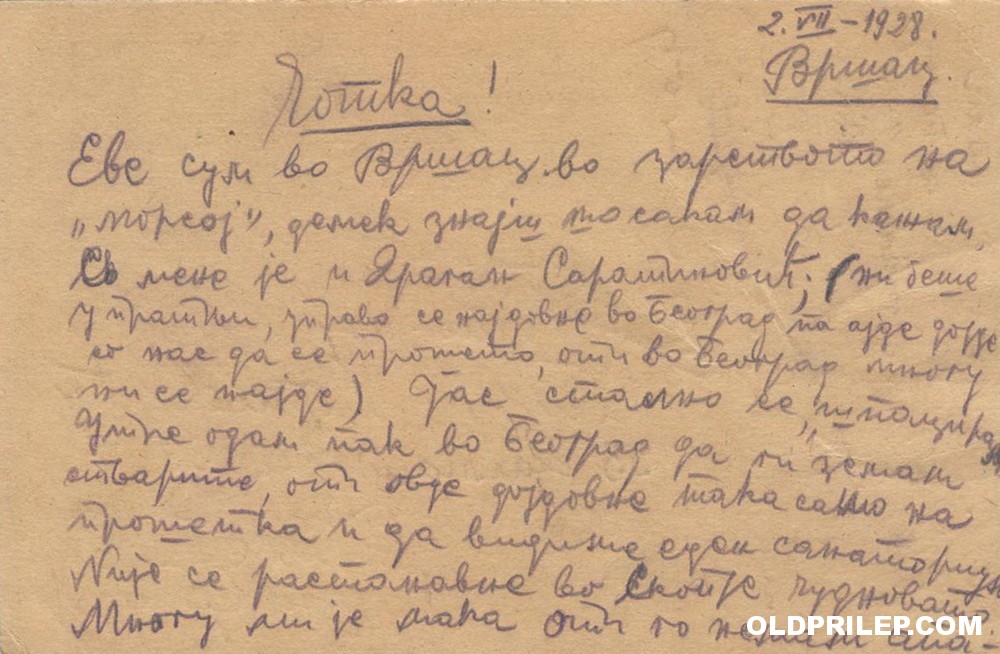 2. VII - 1928.
Вршац.
Чотка!
Еве сум во Вршац во зарството на
„морсој", демек знајш шо сакам да кажам.
Со мене је и Драган Саратиновић; (ни беше
у пратњи, управо се најдовме во Београд па ајде дојде
со нас да се прошета, оти во Београд многу
ни се најде) Јас стално се „шпацирам
Утре одам пак во Београд да ги земам
стварите, оти овде дојдовме така само на
прошетка и да видиме еден санаториум
Није се растанавме во Скопје чудновато
Многу ми је мака оти го немам ама-
OLDPRILEP.COM